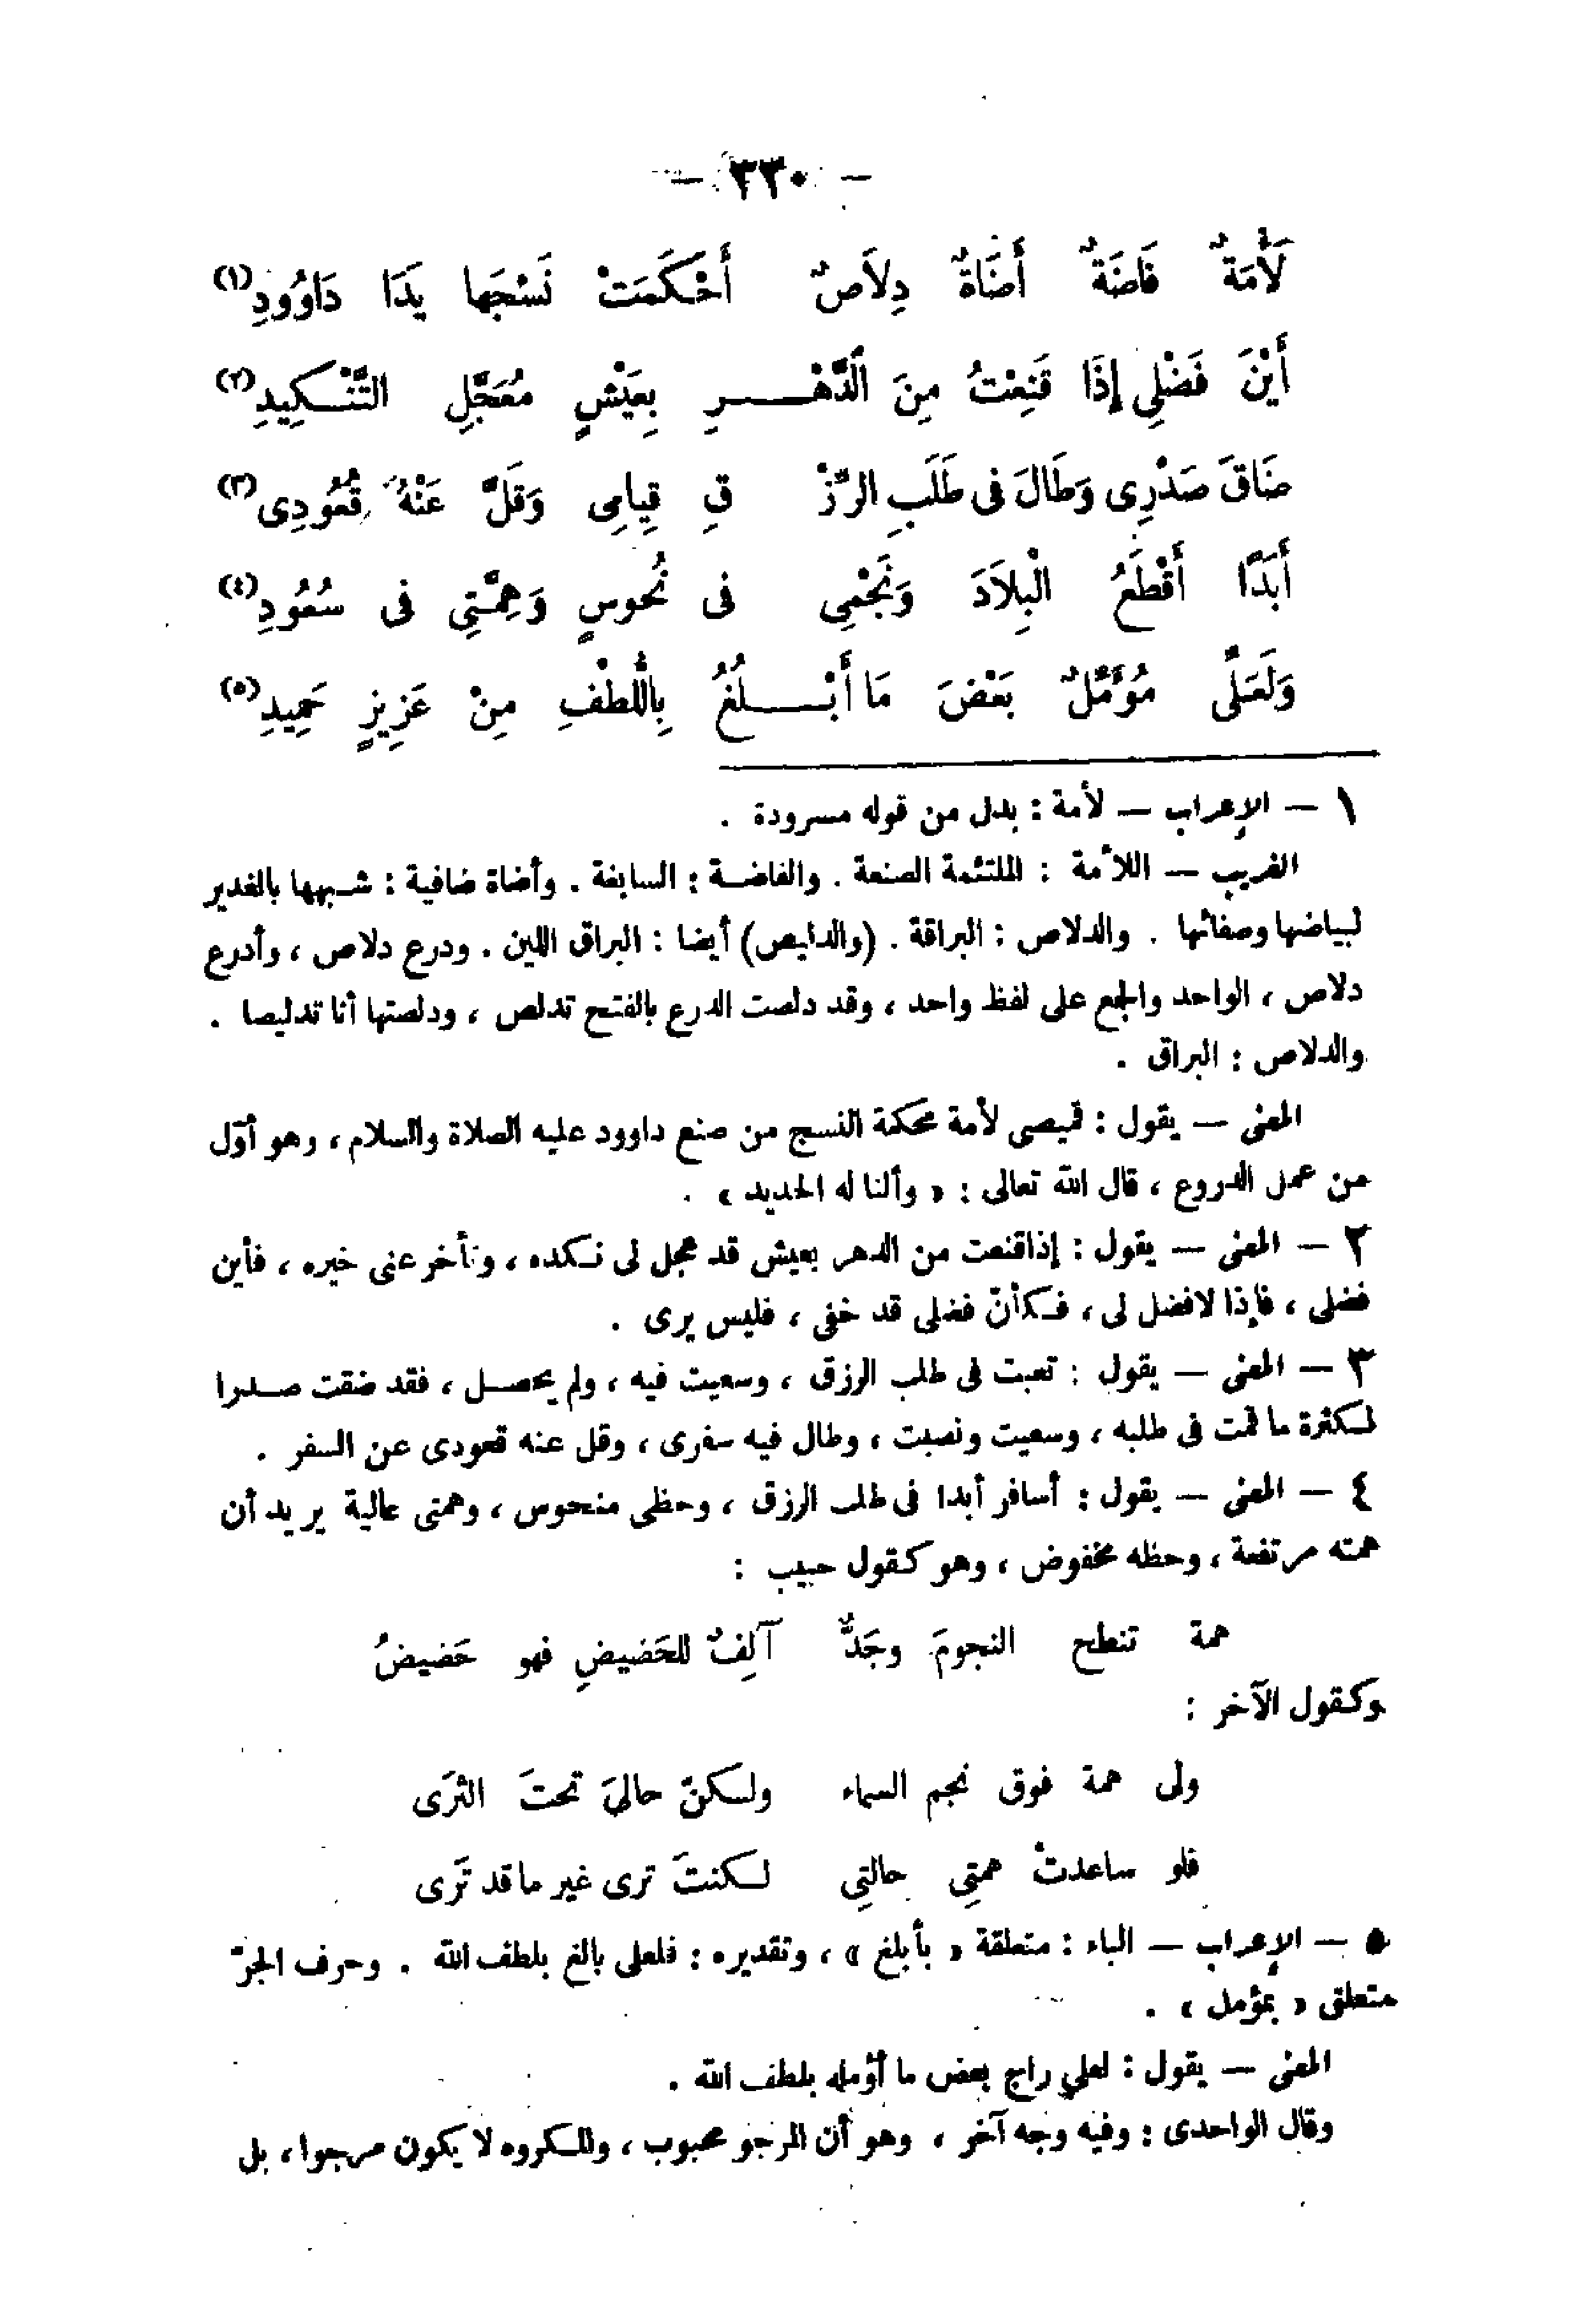 — ٣٣٠ —
لَأْمَةٌ فَاضَةٌ أَضَاةٌ دِلاَصٌ أَحْكَمَتْ نَسْجَهَا يَدَا دَاوُودِ (١)
أَيْنَ فَضْلِي إِذَا قَنِعْتُ مِنَ الدَّهْرِ بِعَيْشٍ مُعَجَّلِ التَّنْكِيدِ (٢)
ضَاقَ صَدْرِى وَطَالَ فى طَلَبِ الرِّزْ قِ قِيامِى وَقَلَّ عَنْهُ قُعُودِى (٣)
أَبَدًا أَقْطَعُ الْبِلاَدَ وَنَجْمِى فى نُحوسٍ وَهِمَّتِى فى سُعُودِ (٤)
وَلَعَلِّى مُؤَمِّلٌ بَعْضَ مَا أَبْلُغُ بِاللُّطْفِ مِنْ عَزِيزٍ حَمِيدِ (٥)
١ — الإعراب — لأمة : بدل من قوله مسرودة .
الغريب — اللأمة : الملتئمة الصنعة . والفاضة : السابغة . وأضاة ضافية : شبهها بالغدير
لبياضها وصفائها . والدلاص : البراقة . (والدليص) أيضا : البراق اللين . ودرع دلاص ، وأدرع
دلاص ، الواحد والجمع على لفظ واحد ، وقد دلصت الدرع بالفتح تدلص ، ودلصتها أنا تدليصا .
والدلاص : البراق .
المعنى — يقول : قميصى لأمة محكمة النسج من صنع داوود عليه الصلاة والسلام ، وهو أوّل
من عمل الدروع ، قال الله تعالى : « وألنا له الحديد » .
٢ — المعنى — يقول : إذاقنعت من الدهر بعيش قد عجل لى نكده ، وتأخر عنى خيره ، فأين
فضلى ، فإذا لافضل لى ، فكأنّ فضلى قد خفى ، فليس يرى .
٣ — المعنى — يقول : تعبت فى طلب الرزق ، وسعيت فيه ، ولم يحصل ، فقد ضقت صدرا
لكثرة ما قمت فى طلبه ، وسعيت ونصبت ، وطال فيه سفرى ، وقل عنه قعودى عن السفر .
٤ — المعنى — يقول : أسافر أبدا فى طلب الرزق ، وحظى منحوس ، وهمتى عالية يريد أن
همته مرتفعة ، وحظه مخفوض ، وهو كقول حبيب :
همة تنطح النجومَ وجَدٌّ آلِفٌ للحَضيضِ فهو حَضيضُ
وكقول الآخر :
ولى همة فوق نجم السماء ولكنّ حالىَ تحتَ الثرَى
فلو ساعدتْ همتِى حالتِى لكنتَ ترى غير ما قد تَرى
٥ — الإعراب — الباء : متعلقة « بأبلغ » ، وتقديره : فلعلى بالغ بلطف الله . وحرف الجرّ
متعلق « بمؤمل » .
المعنى — يقول : لعلي راج بعض ما أؤمله بلطف الله .
وقال الواحدى : وفيه وجه آخر ، وهو أن المرجو محبوب ، والمكروه لا يكون مرجوا ، بل